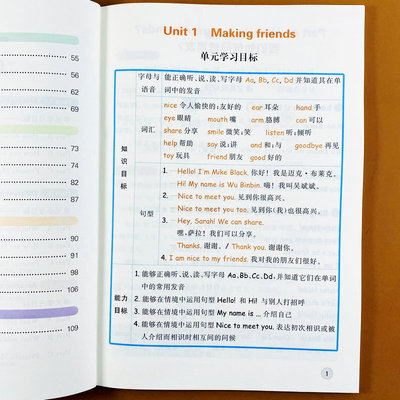 55
56
69
73
74
87
91
92
105
109
Unit 1 Making friends
单元学习目标
知识目标
字母与语音
能正确听、说、读、写字母 Aa, Bb, Cc, Dd 并知道其在单
词中的发音
词汇
nice 令人愉快的;友好的 ear 耳朵 hand 手
eye 眼睛 mouth 嘴 arm 胳膊 can 可以
share 分享 smile 微笑;笑 listen 听;倾听
help 帮助 say 说;讲 and 和;与 goodbye 再见
toy 玩具 friend 朋友 good 好的
句型
1. — Hello! I'm Mike Black. 你好!我是迈克·布莱克。
— Hi! My name is Wu Binbin. 嗨!我叫吴斌斌。
2. — Nice to meet you. 见到你很高兴。
— Nice to meet you too. 见到你(我)也很高兴。
3. — Hey, Sarah! We can share.
嘿,萨拉!我们可以分享。
— Thanks. 谢谢。/ Thank you. 谢谢你。
4. I am nice to my friends. 我对我的朋友们很好。
能力目标
1. 能够正确听、说、读、写字母 Aa、Bb、Cc、Dd,并知道它们在单词
中的常用发音
2. 能够在情境中运用句型 Hello! 和 Hi! 与别人打招呼
3. 能够在情境中运用句型 My name is ... 介绍自己
4. 能够在情境中运用句型 Nice to meet you. 表达初次相识或被
人介绍而相识时相互间的问候
1